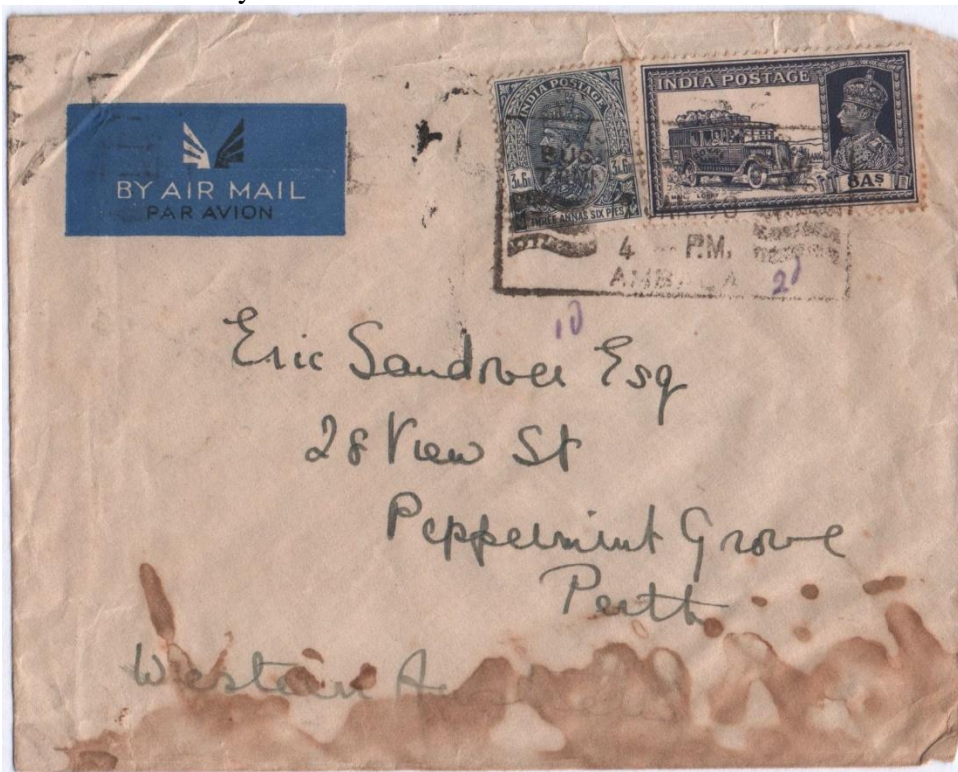 BY AIR MAIL
PAR AVION
INDIA POSTAGE
3a.6p.
THREE ANNAS SIX PIES
INDIA POSTAGE
MAIL LORRY
6As
4 P.M.
1d
2d
Eric Sandover Esq
28 View St
Peppermint Grove
Perth
Western